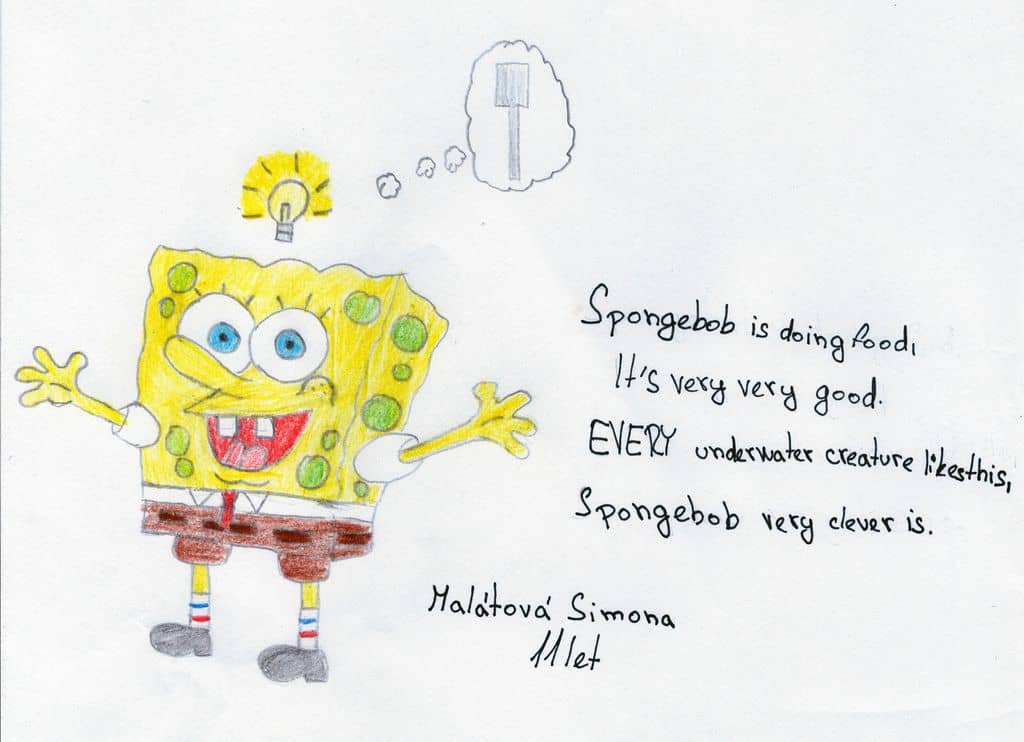 Spongebob is doing food,
It's very very good.
EVERY underwater creature likes this,
Spongebob very clever is.
Malátová Simona
11 let